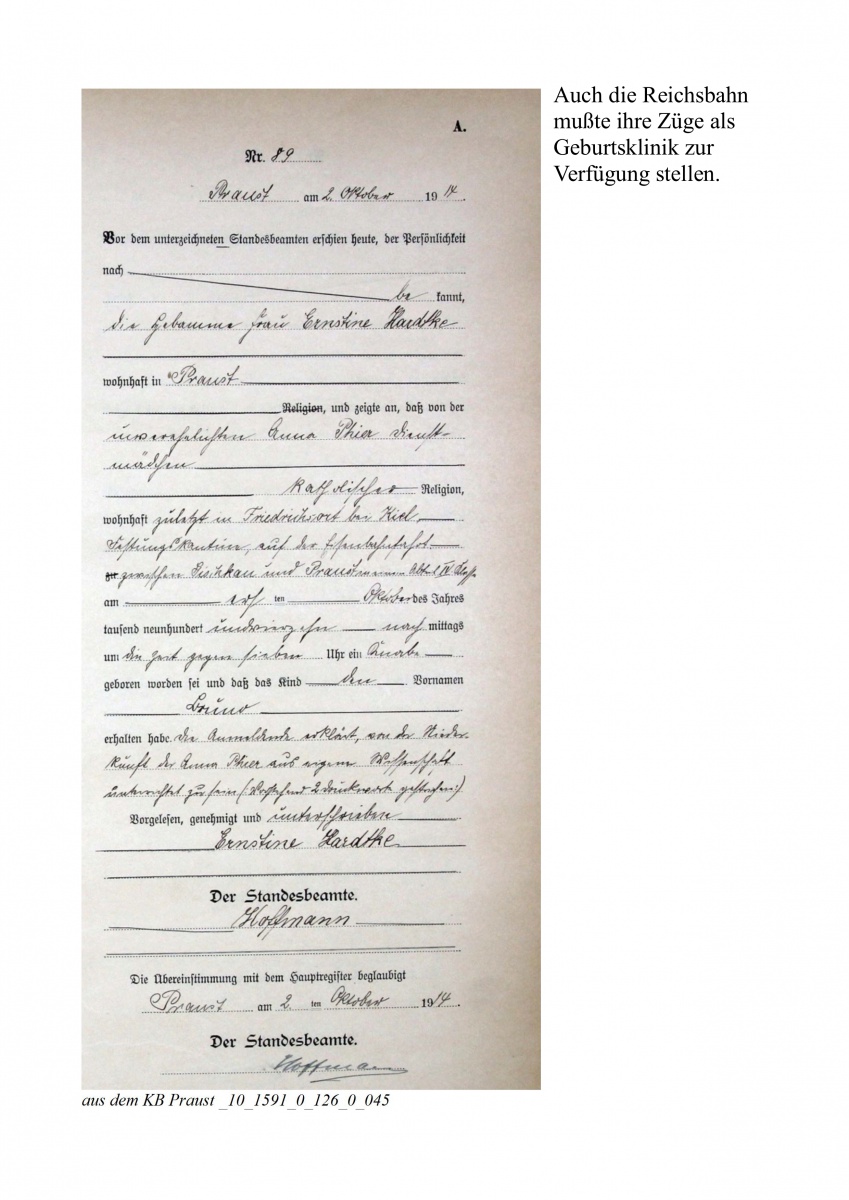 Auch die Reichsbahn
mußte ihre Züge als
Geburtsklinik zur
Verfügung stellen.
A.
Nr. 89
Praust am 2. Oktober 1914.
Vor dem unterzeichneten Standesbeamten erschien heute, der Persönlichkeit
nach
be kannt,
die Hebamme Frau Ernstine Hardtke
wohnhaft in Praust
Religion, und zeigte an, daß von der
unverehelichten Anna Phier Dienst-
mädchen
katholischer Religion,
wohnhaft zuletzt in Friedrichsort bei Kiel
Festungskantine, auf der Eisenbahnfahrt
zu zwischen Sischkau und Praust
am ers ten Oktober des Jahres
tausend neunhundert undvierzehn nach mittags
um die Zeit gegen sieben Uhr ein Knabe
geboren worden sei und daß das Kind den Vornamen
Bruno
erhalten habe. Die Anmeldende erklärt, von der Nieder-
kunft der Anna Phier aus eigener Wissenschaft
unterrichtet zu sein (Vorstehend 2 Druckworte gestrichen)
Vorgelesen, genehmigt und unterschrieben
Ernstine Hardtke
Der Standesbeamte.
Hoffmann
Die Übereinstimmung mit dem Hauptregister beglaubigt
Praust am 2. ten Oktober 1914.
Der Standesbeamte.
Hoffmann
aus dem KB Praust _10_1591_0_126_0_045